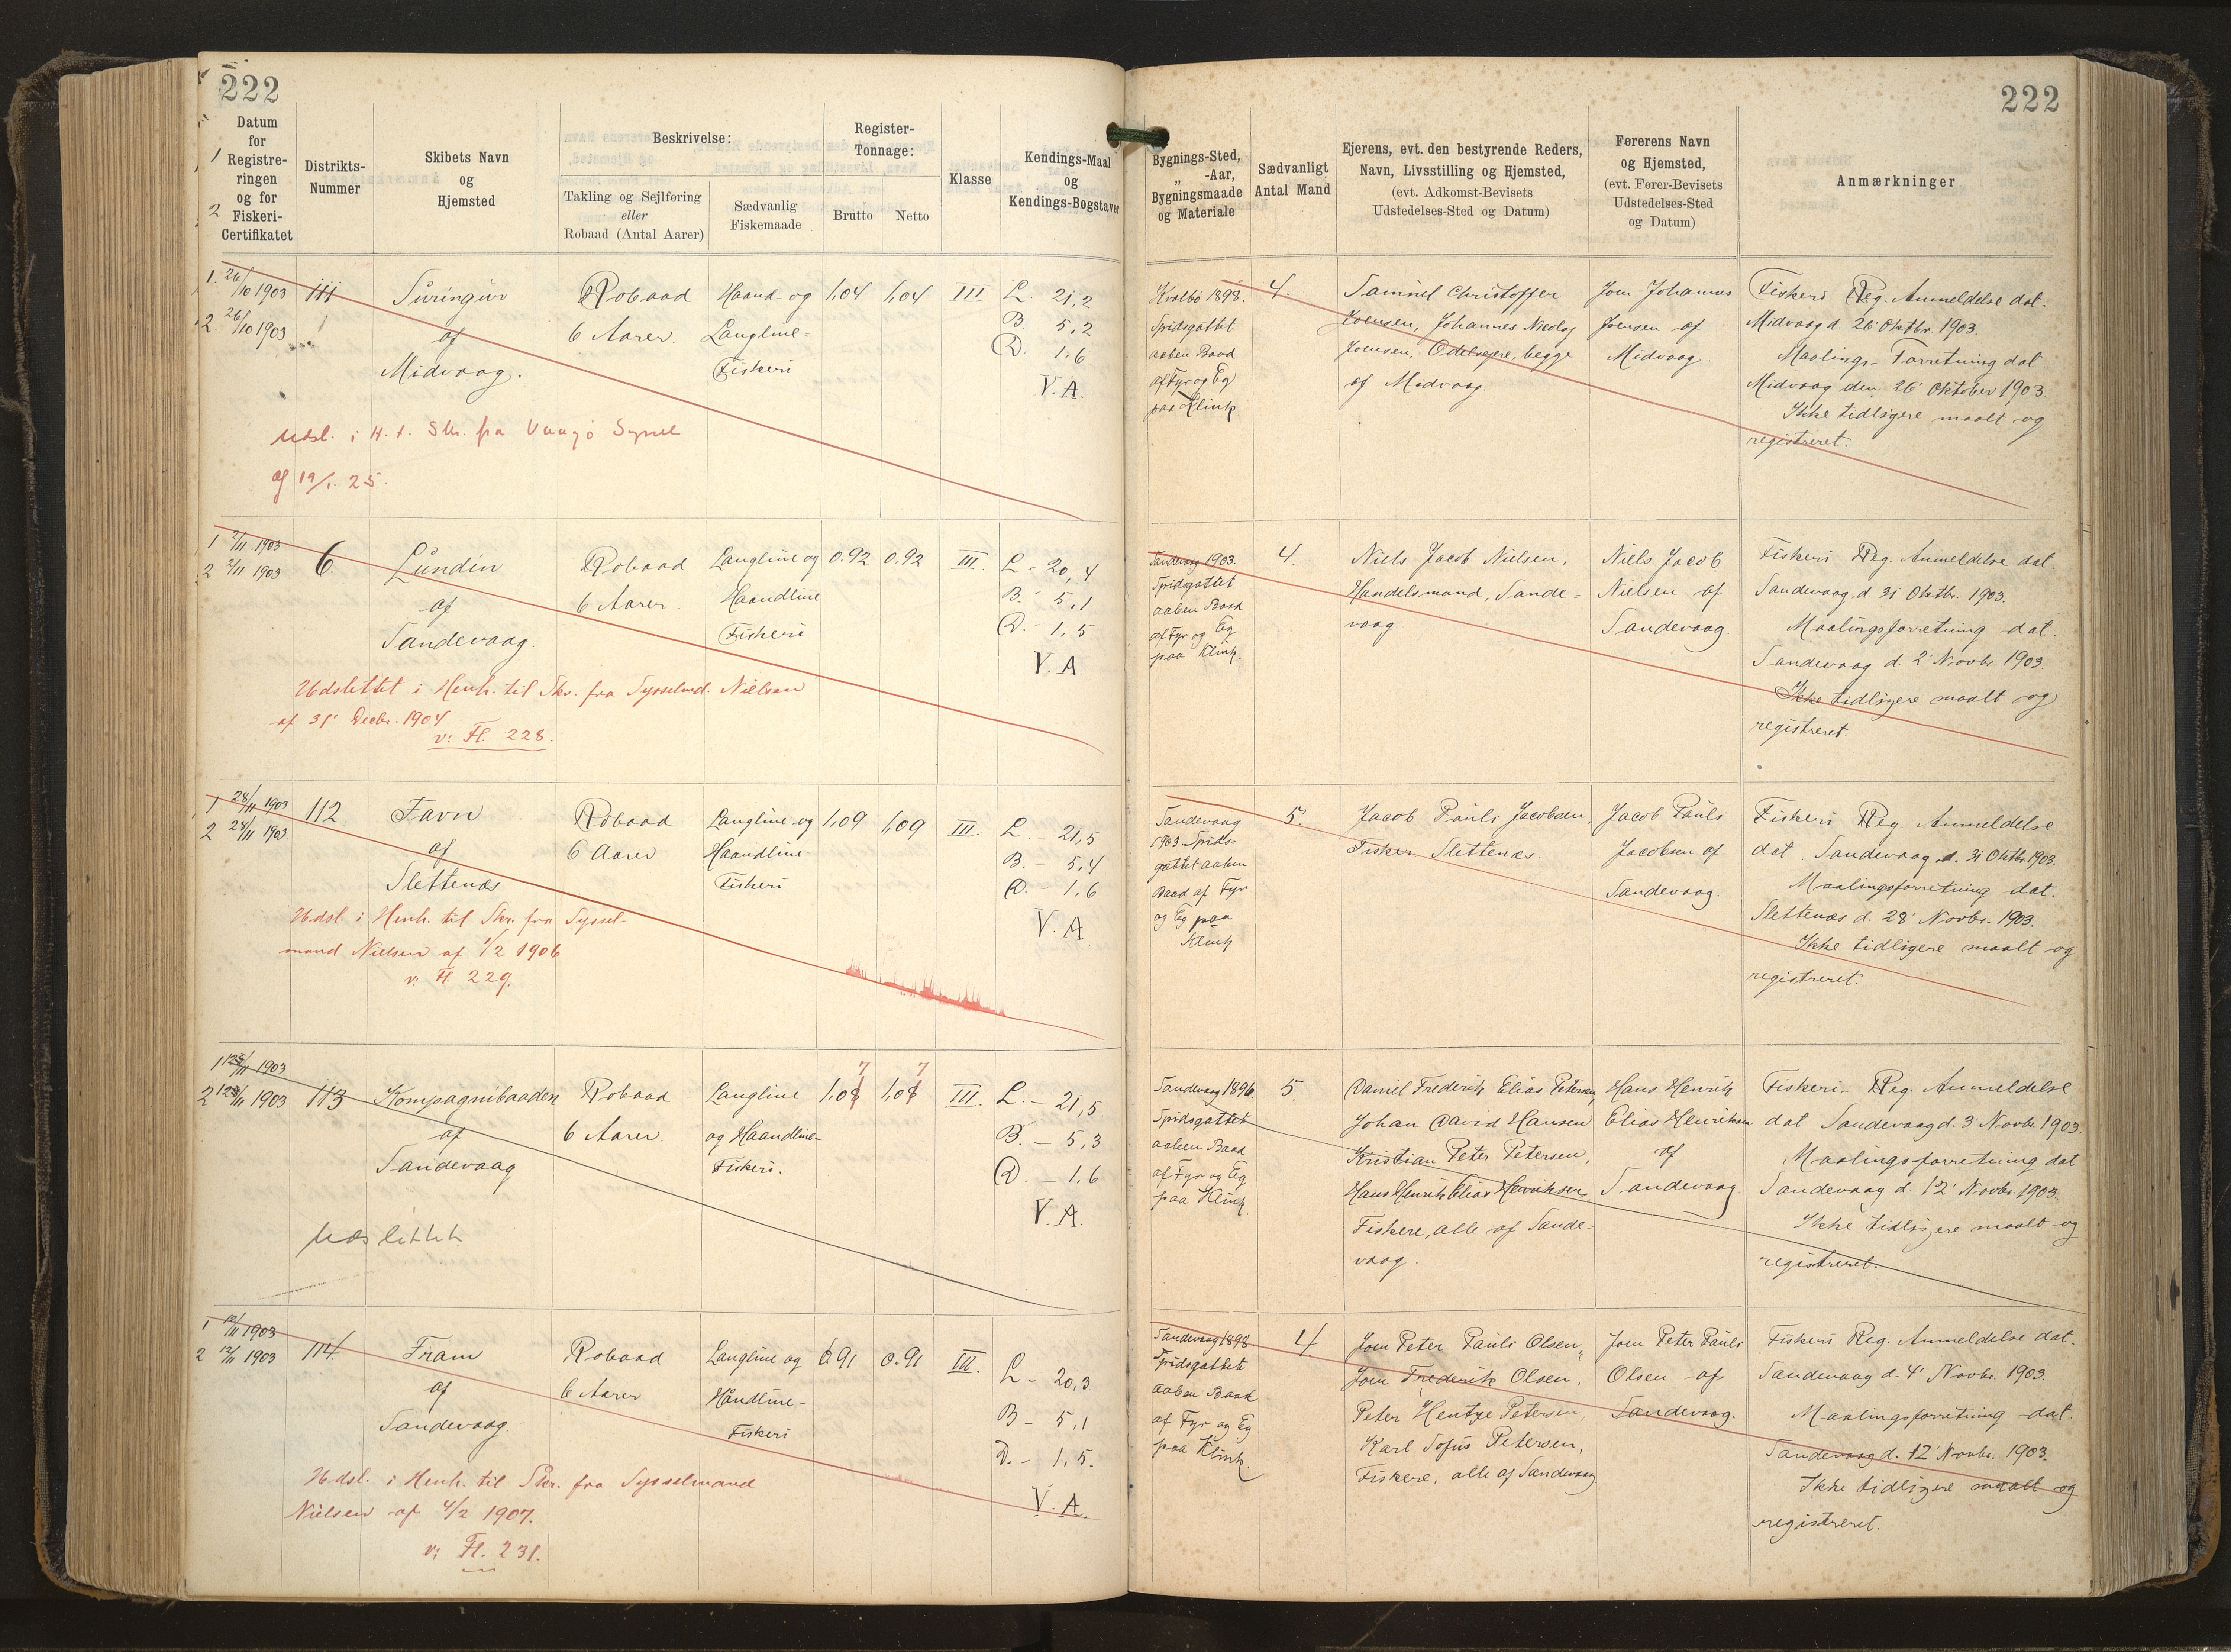 222
222
Datum for Registreringen og for Fiskeri-Certifikatet
Distrikts-Nummer
Skibets Navn og Hjemsted
Beskrivelse:
Takling og Sejlføring eller Robaad (Antal Aarer)
Sædvanlig Fiskemaade
Register-Tonnage:
Brutto
Netto
Klasse
Kendings-Maal og Kendings-Bogstaver
Bygnings-Sted, „ -Aar, Bygningsmaade og Materiale
Sædvanligt Antal Mand
Ejerens, evt. den bestyrende Reders, Navn, Livsstilling og Hjemsted, (evt. Adkomst-Bevisets Udstedelses-Sted og Datum)
Førerens Navn og Hjemsted, (evt. Fører-Bevisets Udstedelses-Sted og Datum)
Anmærkninger
1. 26/10 1903
2. 26/10 1903
111
Suringur
af
Midvaag.
Robaad
6 Aarer.
Haand- og
Langline-
Fiskeri
1,04
1,04
III
L. 21,2
B. 5,2
D. 1,6
V.A.
1898.
Spidsgattet
aaben Baad
af Fyr og Eg
paa Klink
4.
Samuel Christoffer
Joensen, Johannes Nicolaj
Joensen, Odelsejere, begge
af Midvaag.
Joen Johannes
Joensen af
Midvaag.
Fiskeri Reg. Anmeldelse dat.
Midvaag d. 26' Oktbr. 1903.
Maalings-Forretning dat
Midvaag den 26' Oktober 1903.
Ikke tidligere maalt og
registreret.
Udsl. i H. t. Skr. fra Vaagø Syssel
af 19/1. 25.
1 2/11 1903
2 2/11 1903
6.
Lundin
af
Sandevaag.
Robaad
6 Aarer.
Langline og
Haandline
Fiskeri
0.92
0.92
III.
L. - 20,4
B. - 5,1
D. - 1,5
V.A
Sandevaag 1903.
Spidsgattet
aaben Baad
af Fyr og Eg
paa Klink.
4.
Niels Jacob Nielsen,
Handelsmand, Sande-
vaag.
Niels Jacob
Nielsen af
Sandevaag.
Fiskeri Reg. Anmeldelse dat.
Sandevaag d. 31 Oktbr. 1903.
Maalingsforretning dat.
Sandevaag d. 2' Novbr. 1903.
Ikke tidligere maalt og
registreret.
Udslettet i Henh. til Skr. fra Sysselmd. Nielsen
af 31' Decbr. 1904
v: Fl. 228.
1 28/11 1903
2 28/11 1903
112.
Favn
af
Slettenæs
Robaad
6 Aarer
Langline og
Haandline
Fiskeri
1,09
1,09
III.
L. - 21,5
B. - 5,4
D. - 1,6
V.A
Sandevaag
1903. Spids-
gattet aaben
Baad af Fyr
og Eg paa
Klink
5.
Jacob Pauli Jacobsen,
Fisker Slettenæs.
Jacob Pauli
Jacobsen af
Sandevaag.
Fiskeri Reg Anmeldelse
dat. Sandevaag d. 31 Oktbr. 1903.
Maalingsforretning dat.
Slettenæs d. 28' Novbr. 1903.
Ikke tidligere maalt og
registreret.
Udsl. i Henh. til Skr. fra Syssel-
mand Nielsen af 1/2 1906
v: Fl. 229.
1 12/11 1903
2 12/11 1903
113
Kompagnibaaden
af
Sandevaag
Robaad
6 Aarer.
Langline
og Haandline-
Fiskeri.
1,08 7
1,08 7
III.
L. - 21,5.
B. - 5,3
D. - 1,6
V.A.
Sandevaag 1896.
Spidsgattet
aaben Baad
af Fyr og Eg
paa Klink.
5.
Daniel Frederik Elias Petersen,
Johan David Hansen
Kristian Peter Petersen,
Hans Henrik Elias Henriksen,
Fiskere, alle af Sande-
vaag.
Hans Henrik
Elias Henriksen
af
Sandevaag
Fiskeri- Reg. Anmeldelse
dat Sandevaag d. 3' Novbr. 1903.
Maalingsforretning dat
Sandevaag d. 12' Novbr. 1903.
Ikke tidligere maalt og
registreret.
Udslettet
1 12/11 1903
2 12/11 1903
114.
Fram
af
Sandevaag
Robaad
6 Aarer
Langline og
Håndline-
Fiskeri
0.91
0.91
III.
L - 20,3
B - 5,1
D. - 1,5.
V.A.
Sandevaag 1898
Spidsgattet
aaben Baad
af Fyr og Eg
paa Klink.
4.
Joen Peter Pauli Olsen,
Joen Frederik Olsen,
Peter Hentze Petersen,
Karl Sofus Petersen,
Fiskere, alle af Sandevaag
Joen Peter Pauli
Olsen af
Sandevaag.
Fiskeri Reg. Anmeldelse dat.
Sandevaag d. 4' Novbr. 1903.
Maalingsforretning dat.
Sandevaag d. 12' Novbr. 1903.
Ikke tidligere maalt og
registreret.
Udsl. i Henh. til Skr. fra Sysselmand
Nielsen af 4/2 1907.
v: Fl. 231.